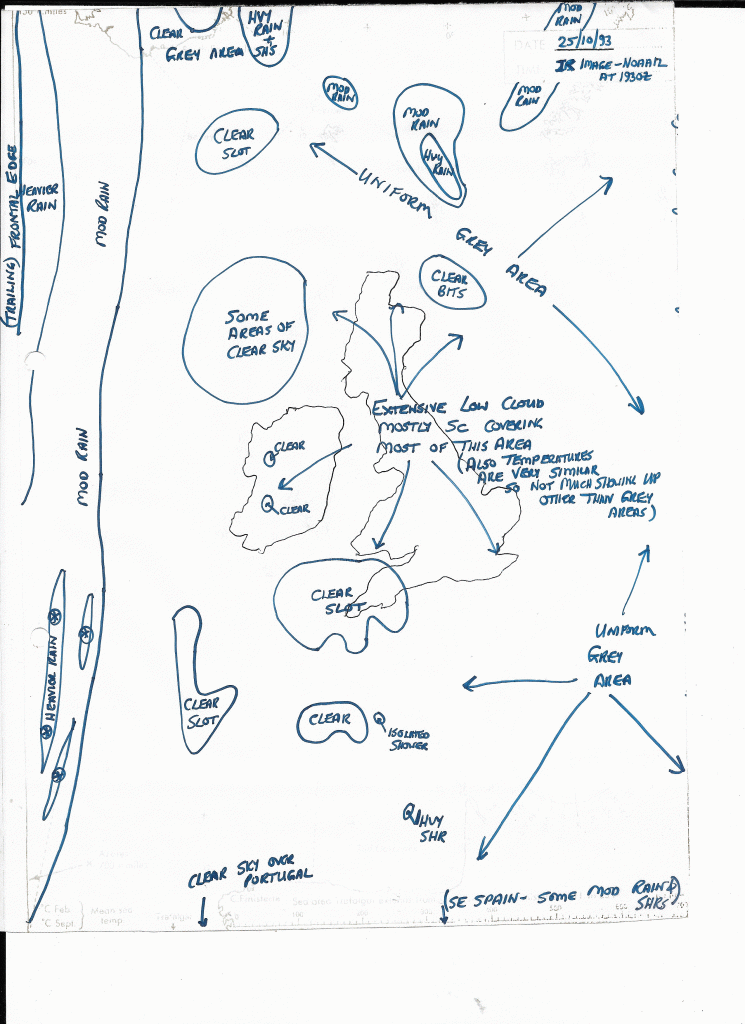 CLEAR
GREY AREA
HVY
RAIN
+
SH'S
MOD
RAIN
DATE
25/10/93
IR IMAGE - NOAA 12
AT 1930Z
MOD
RAIN
MOD
RAIN
MOD
RAIN
HVY
RAIN
CLEAR
SLOT
UNIFORM
GREY AREA
(TRAILING) FRONTAL EDGE
HEAVIER
RAIN
MOD RAIN
CLEAR
BITS
SOME
AREAS OF
CLEAR SKY
EXTENSIVE LOW CLOUD
MOSTLY SC COVERING
MOST OF THIS AREA
(ALSO TEMPERATURES
ARE VERY SIMILAR
SO NOT MUCH SHOWING UP
OTHER THAN GREY
AREAS)
CLEAR
CLEAR
MOD RAIN
CLEAR
SLOT
HEAVIER RAIN
UNIFORM
GREY
AREA
CLEAR
SLOT
CLEAR
ISOLATED
SHOWER
HVY
SHR
CLEAR SKY OVER
PORTUGAL
(SE SPAIN - SOME MOD RAIN &)
SHRS
°C Feb.
°C Sept.
Mean sea
temp.